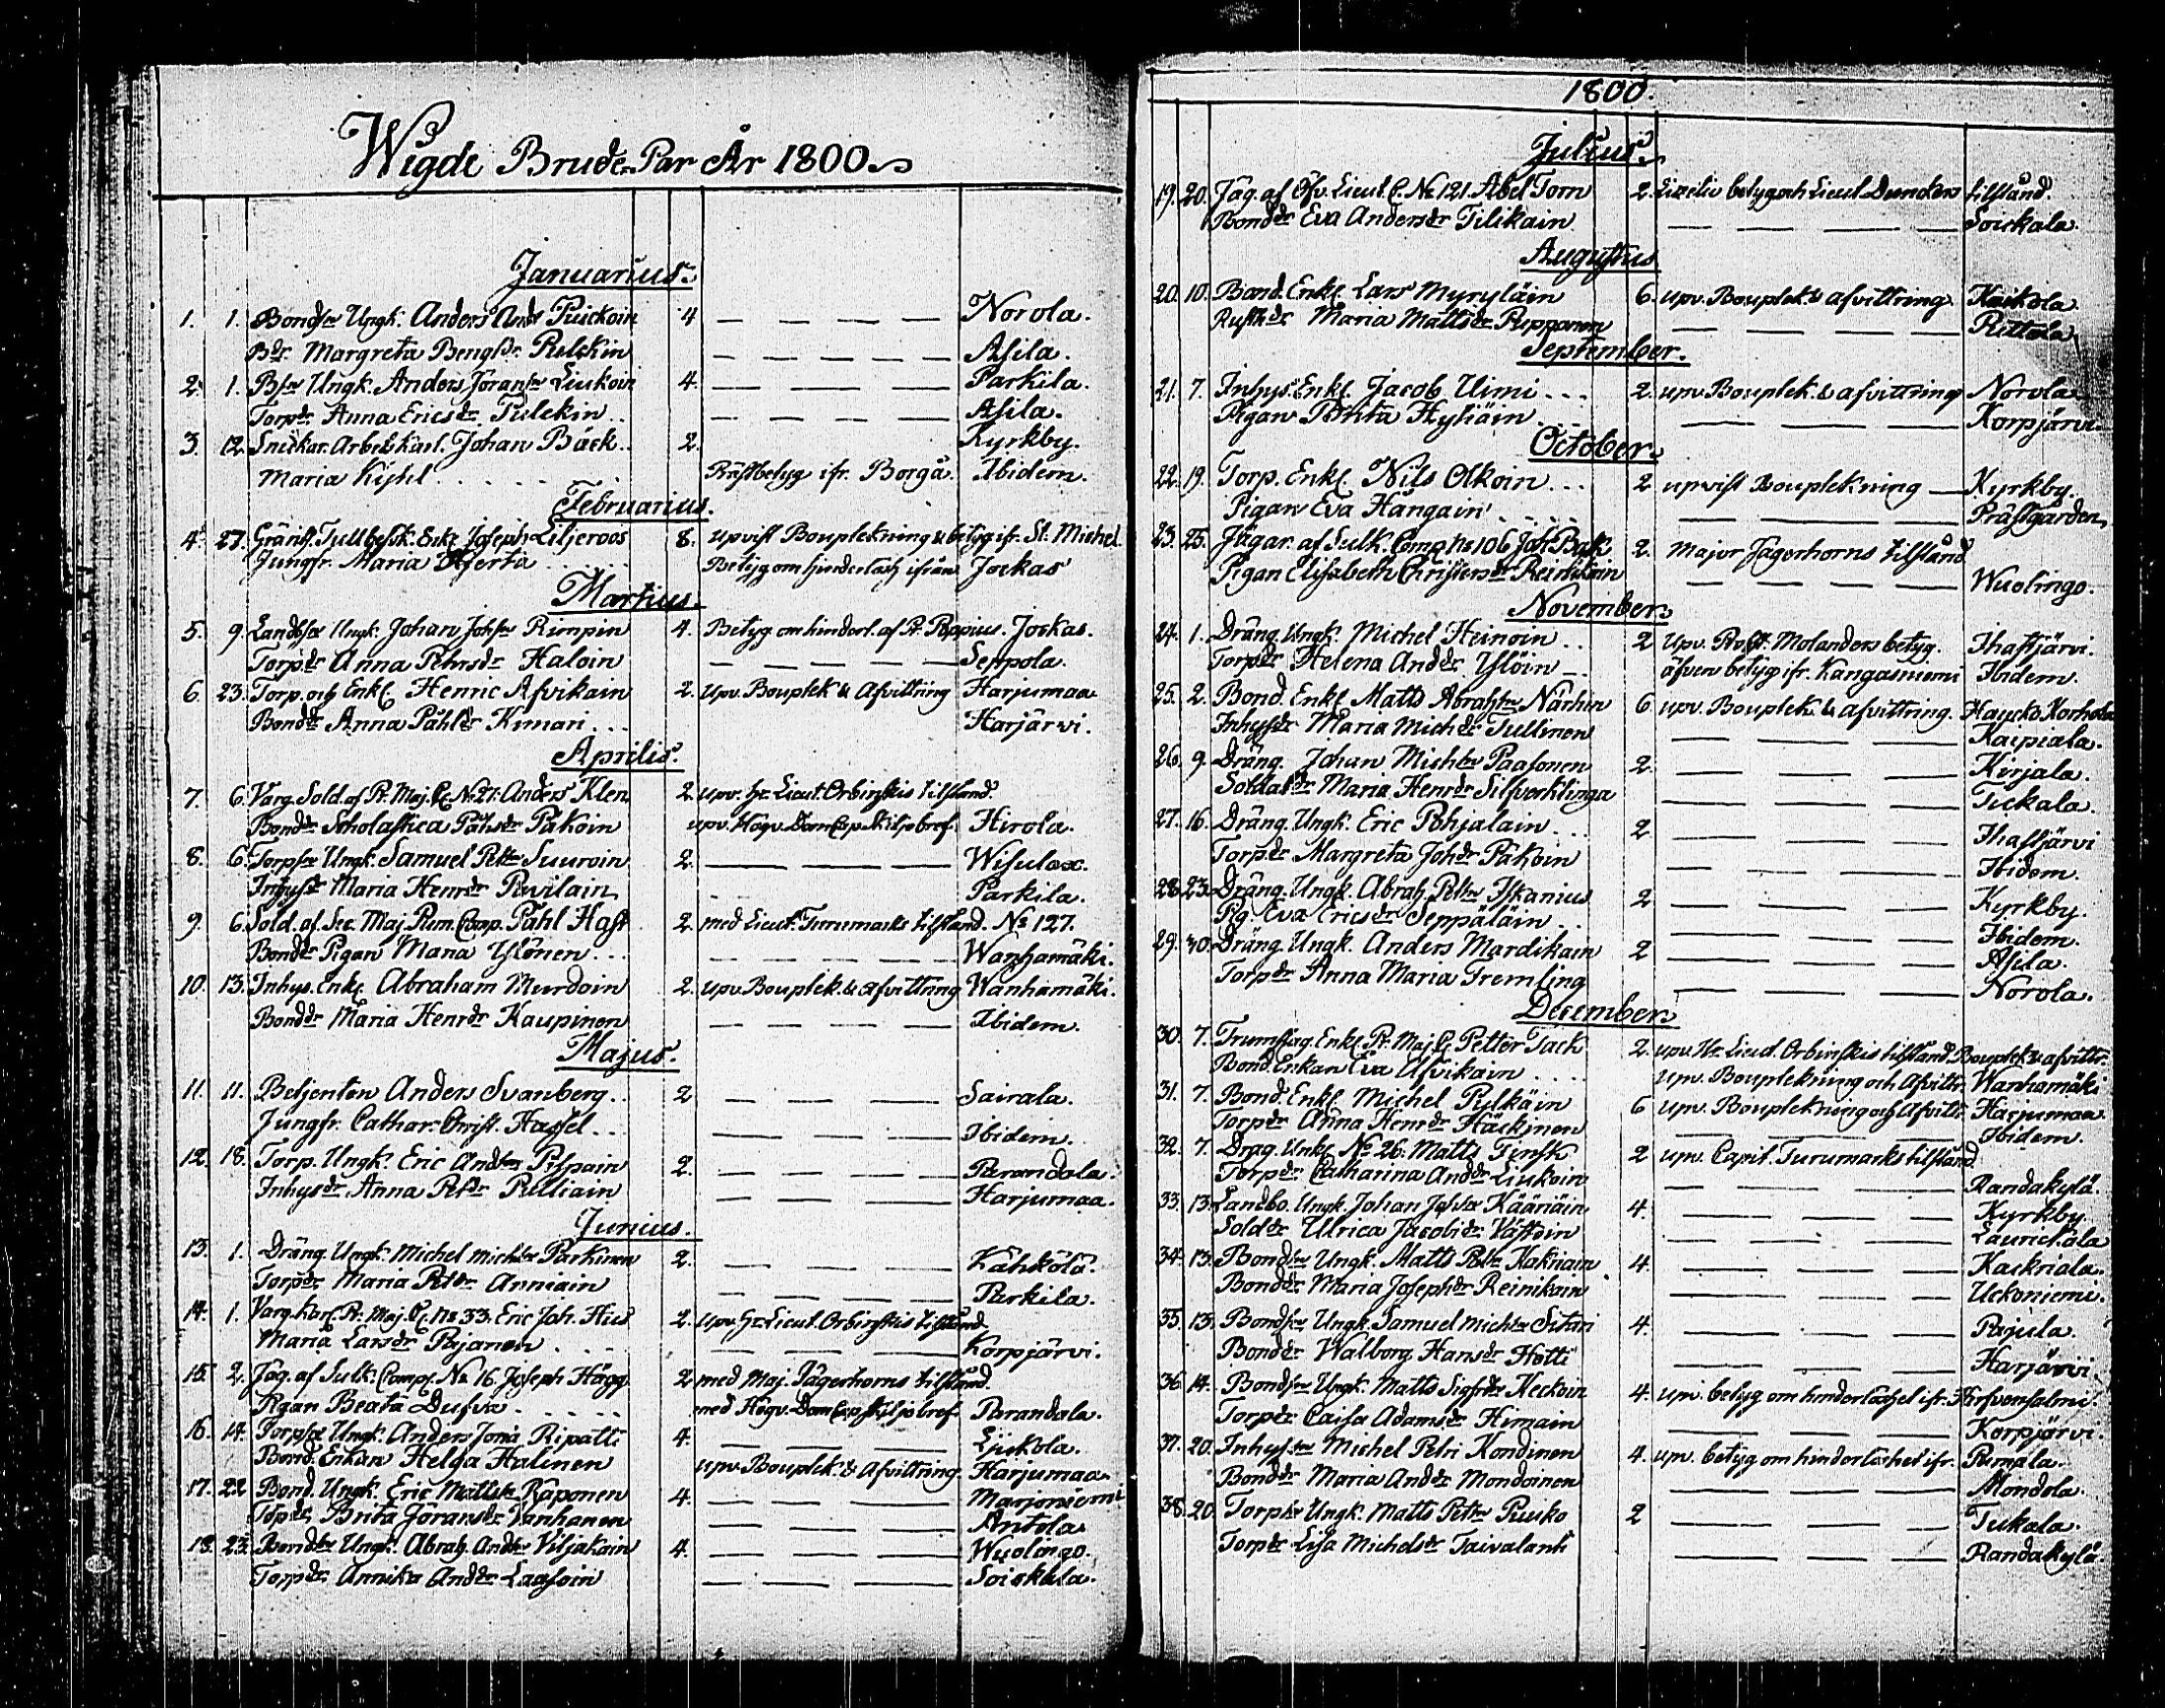 Wigde Brude-Par År 1800
Januarius.
1. 1. Bondsn Ungk. Anders Ands Puickoin 4 Norola.
Bdr. Margreta Bengtsdr. Pulckin Asila.
2. 1. Bsn Ungk. Anders Joransn Liukoin 4. Parkila.
Torpdr. Anna Ericsdr. Pulckin Asila.
3. 12. Snickar. Arbets Karl. Johan Bäck 2. Kyrkby.
Maria Kijhl Prästbetyg ifr. Borgå. Ibidem.
Februarius.
4. 27. Gränts. Tullbesök. Enkl. Joseph Liljeroos 8. upvist Bouplekning & betyg ifr. St. Michel.
Jungfr. Maria Hjerta Betyg om hinderlösh. ifrån Jockas
Martius.
5. 9. Landbsn Ungk. Johan Johsn Rimpin 4. Betyg om hinderl. af Pr. Poppius. Jockas.
Torpdr. Anna Pehrsdr. Haloin Seppola.
6. 23. Torp. och Enkl. Henric Afvikain 2. upv. Bouplek. & Afvittring Harjumaa
Bonddr. Anna Påhlsdr. Kimari Harjärvi.
Aprilis.
7. 6. Varg. Sold. af Pr. Maj. C. No 27. Anders Klen 2. upv. Hr. Lieut. Orbinskis tilstånd.
Bonddr. Scholastica Påhsdr. Pakoin upv. Högv. Dom Cap. Skiljobref. Hirola.
8. 6. Torpsn Ungk. Samuel Petsn Suuroin 2. Wisulax.
Inhysdr. Maria Henrdr. Pevilain Parkila.
9. 6. Sold. af Sec. Maj. Rum. Comp. Påhl Hast 2. med Lieut. Turumarks tilstånd. No 127.
Bonddr. Pigan Maria Ylönen Wanhamäki.
10. 13. Inhys. Enkl. Abraham Murdoin 2. upv. Bouplek. & afvittring Wanhamäki.
Bonddr. Maria Henrdr. Kaupinen Ibidem.
Majus.
11. 11. Betjenten Anders Svanberg 2 Sairala.
Jungfr. Cathar. Christ. Hassel Ibidem.
12. 18. Torp. Ungk. Eric Andsn Pispain 2. Parandala.
Inhysdr. Anna Petdr. Pulliain Harjumaa.
Junius.
13. 1. Dräng. Ungk. Michel Michsn Parkinen 2. Kähkölä.
Torpdr. Maria Petdr. Anniain Parkila.
14. 1. Varg. karl. Pr. Maj. C. No 33. Eric Joh. Hius 2. upv. Hr. Lieut. Orbinskis tilstånd.
Maria Larsdr. Pajanen Korpjärvi.
15. 2. Jäg. af Sulk. Comp. No 16. Joseph Hägg 2 med Maj. Jägerhorns tilstånd.
Pigan Beata Dufva med Högv. Dom Cap. Skiljobref Parandala.
16. 14. Torpsn Ungk. Anders Jona Ripatti 4. Ljukola.
Bond. Enkan Helga Halinen upv. Bouplek. & Afvittring. Harjumaa
17. 22 Bond. Ungk. Eric Mattsn Räponen 4. Marjoniemi
Topdr. Brita Joransdr. Vanhanen Antola
18. 23. Bondsn Ungk. Abrah. Andsn Viljakain 4. Wuolingo.
Torpdr. Annika Anddr. Laasoin Soickala.
1800.
Julius.
19. 20. Jäg. af Öfv. Lieut. C. No 121. Abel Torn 2. betyg och Lieut. Dunckers tilstånd.
Bonddr. Eva Andersdr. Tilikain Soickala.
Augustus
20. 10. Bond. Enkl. Lars Myryläin 6. upv. Bouplek. & afvittring. Kaikola
Rusthdr. Maria Mattsdr. Pupponen Pittola
September.
21. 7. Inhys. Enkl. Jacob Uimi 2. upv. Bouplek. & afvittring Norola
Pigan Brita Hytiäin Korpjärvi.
October.
22. 19. Torp. Enkl. Nils Olkoin 2 upvist Bouplekning Kyrkby.
Pigan Eva Hängain Prästgården.
23. 25. Jägar. af Sulk. Comp. No 106 Joh. Bak 2. Major Jägerhorns tilstånd
Pigan Elisabeth Christersdr. Reinikain Wuolingo.
November
24. 1. Dräng. Ungk. Michel Heinoin 2 Upv. Prost. Molanders betyg. Ihastjärvi.
Torpdr. Helena Anddr. Ylöin äfven betyg ifr. Kangasniemi Ibidem.
25. 2. Bond. Enkl. Matts Abrahsn Närhin 6 upv. Bouplek. & afvittring. Haucko Korhola
Inhysdr. Maria Michdr. Tullinen Karpiala.
26. 9. Dräng. Johan Michsn Paasonen 2. Kirjala.
Soldatdr. Maria Henrdr. Silfverklinga Tickala.
27. 16. Dräng. Ungk. Eric Pohjalain 2. Ihastjärvi
Torpdr. Margreta Johdr. Pakoin Ibidem.
28. 23. Dräng. Ungk. Abrah. Petsn Iskanius 2 Kyrkby.
Pig. Eva Ericsdr. Seppäläin Ibidem.
29. 30. Dräng. Ungk. Anders Mardikain 2 Asila.
Torpdr. Anna Maria Tremling Norola.
December
30. 7. Trumslag. Enkl. Pr. Maj. C. Petter Tack 2. upv. Hr. Lieut. Orbinskis tilstånd. Bouplek. & afvittr.
Bond. Enkan Eva Afvikain upv. Bouplekning och Afvittr. Wanhamäki
31. 7. Bond. Enkl. Michel Pylkäin 6 upv. Bouplekning och Afvittr. Harjumaa
Torpdr. Anna Henrdr. Häckinen Ibidem.
32. 7. Drag. Unkl. No 26. Matts Finsk 2 upv. Capit. Turumarks tilstånd
Torpdr. Catharina Anddr. Liukoin Randakylä.
33. 13. Landbo. Ungk. Johan Johsn Kääriäin 4. Kyrkby
Solddr. Ulrica Jacobsdr. Västoin Laurickala
34. 13. Bondsn Ungk. Matts Petsn Kakriain 4. Kackriala.
Bonddr. Maria Josephdr. Reinikain Uckoniemi.
35. 13. Bondsn Ungk. Samuel Michsn Sitari 4. Pajula.
Bonddr. Walborg Hansdr. Hotti Harjärvi
36. 14. Bondsn Ungk. Matts Sigfrdsn Keckoin 4. upv. betyg om hinderlöshet ifr. Hirfvensalmi.
Torpdr. Caisa Adamsdr. Himain Korpjärvi.
37. 20. Inhyssn Michel Petri Kondinen 4. upv. betyg om hinderlöshet ifr. Pumala.
Bonddr. Maria Anddr. Mondoinen Mondola.
38. 20. Torpsn Ungk. Matts Petsn Pursko 2 Tukala.
Torpdr. Lisa Michelsdr. Taivalanti Randakylä.